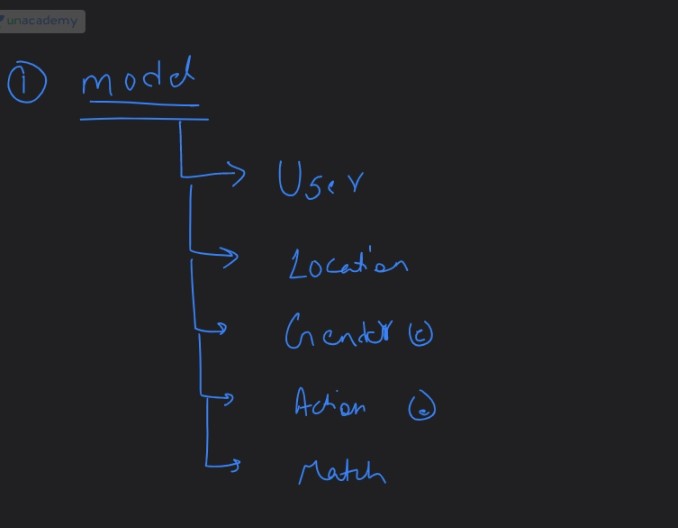 unacademy
① model
User
Location
Gender (c)
Action (e)
Match